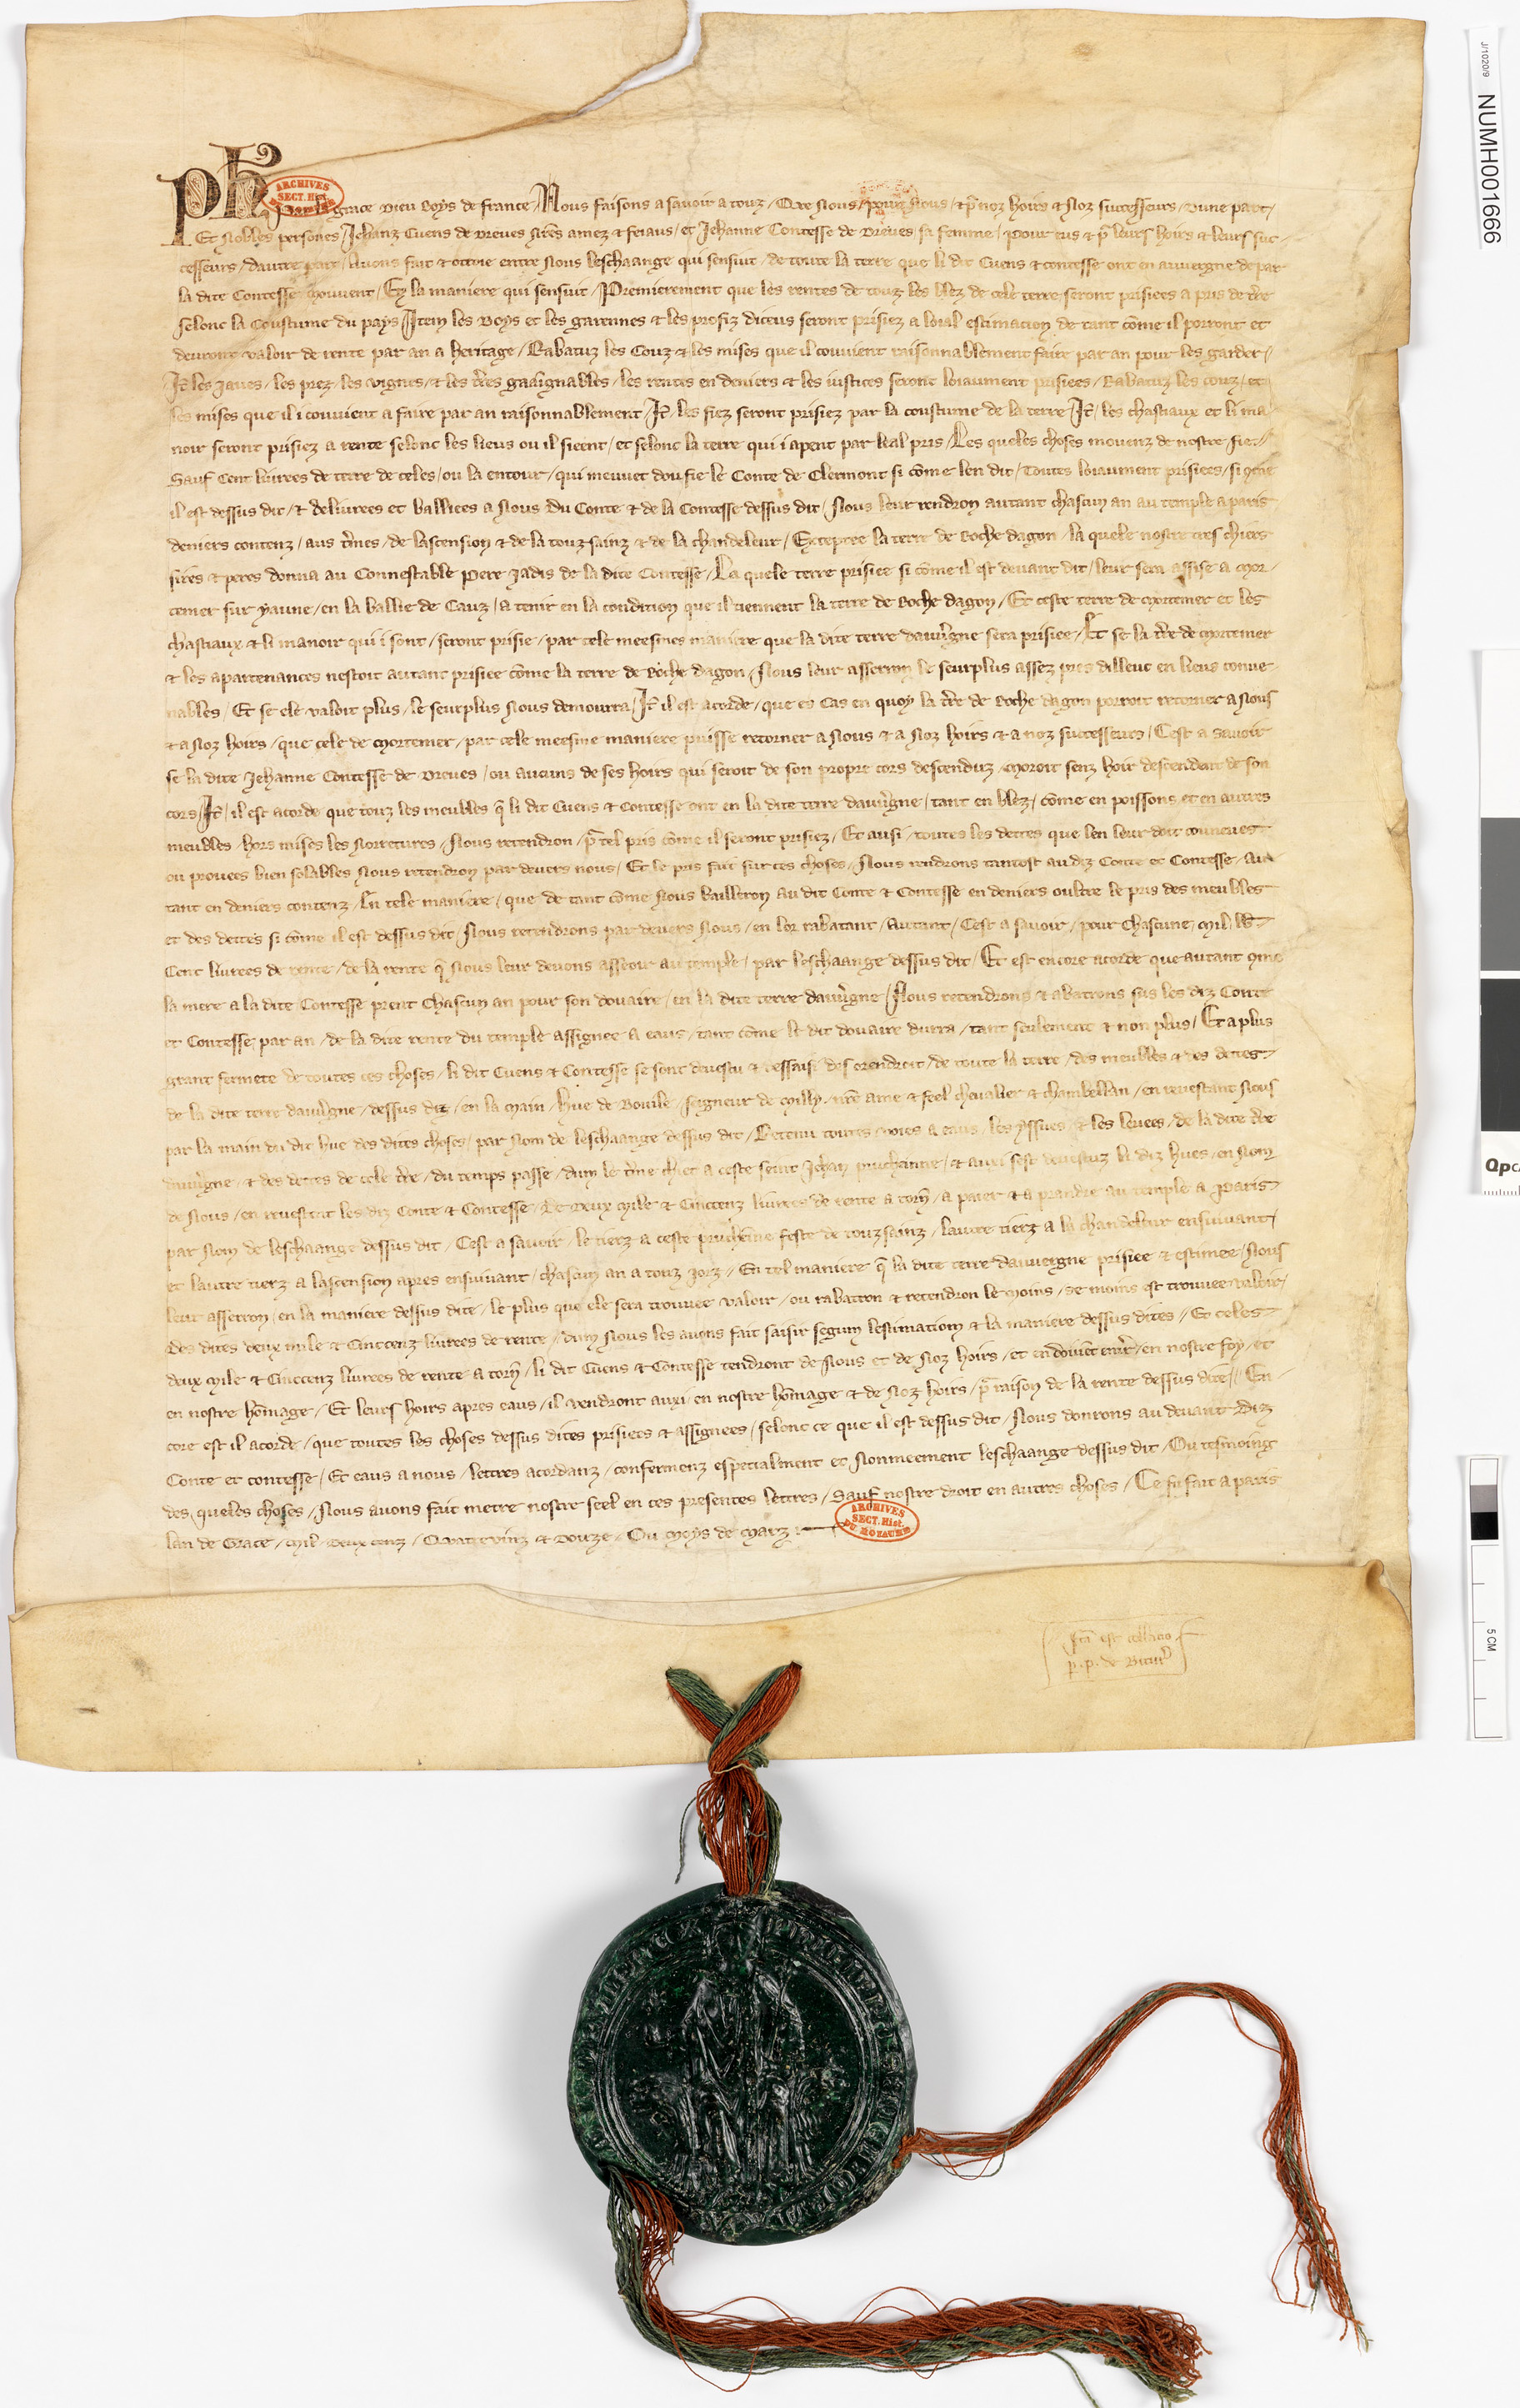 Ph
grace Dieu Roys de France / Nous faisons a savoir a touz / Que Nous / pour Nous / et pr noz hoirs et Noz successeurs / dune part /
Et Nobles persones / Jehanz Cuens de Dreues nres amez et feiaus / et Jehanne Contesse de Dreues sa femme / pour eus et pr leurs hoirs et leurs suc-
cesseurs / dautre part / Avons fait et otroie entre Nous leschaange qui sensuit / de toute la terre que li dit Cuens et contesse ont en auvergne de par
la dite Contesse mouvent / En la maniere qui sensuit / Premierement que les rentes de touz les blez de cele terre seront prisiees a pris de tre
selonc la Coustume du pays / Item les Boys et les garennes et les profiz diceus seront prisiez a loial estimation de tant come il porront et
devront valoir de rente par an a heritage / Rabatuz les Couz et les mises que il convient raisonnablement faire par an pour les garder /
It les Iaues / les prez / les vignes / et les tres gaaignables / les rentes en deniers et les iustices seront loiaument prisiees / Rabatuz les couz / et
les mises que il i convient a faire par an raisonnablement / It / les fiez seront prisiez par la coustume de la terre / It / les chastiaux et li ma-
noir seront prisiez a rente selonc les lieus ou il sieent / et selonc la terre qui i apent par leal pris / Les queles choses movenz de nostre fie /
Sauf Cent livrees de terre de celes / ou la entour / qui meuvet dou fie le Conte de Clermont si come len dit / toutes loiaument prisiees / si come
il est dessus dit / et delivrees et baillies a Nous du Conte et de la Contesse dessus dit / Nous leur rendron autant chascun an au temple a paris
deniers contenz / aus tmes / de lascension et de la touz sainz et de la chandeleur / Exceptee la terre de Roche dagon / la quele nostre tres chiers
sires et peres donna au Connestable pere jadis de la dite Contesse / La quele terre prisiee si come il est devant dit / leur sera assise a Mor-
temer sur yaune / en la baillie de Cauz / a tenir en la condition que il tiennent la terre de Roche dagon / Et ceste terre de mortemer et les
chastiaux et li manoir qui i sont / seront prisie / par cele meesmes maniere que la dite terre dauvgne sera prisiee / Et se la tre de mortemer
et les apartenances nestoit autant prisiee come la terre de Roche dagon / Nous leur asserron le seurplus assez pres dilleuc en lieus conve-
nables / Et se ele valoit plus / le seurplus Nous demourra / It il est acorde / que en cas en quoy la tre de Roche dagon porroit retorner a Nous
et a Noz hoirs / que cele de mortemer / par cele meesme maniere puisse retorner a Nous et a Noz hoirs et a noz successeurs / Cest a savoir
se la dite Jehanne Contesse de Dreues / ou aucuns de ses hoirs qui seroit de son propre cors descenduz moroit senz hoir descendant de son
cors / It / il est acorde que touz les meubles que li dit Cuens et Contesse ont en la dite terre dauvgne / tant en blez / come en poissons et en autres
meubles / hors mises les Norretures / Nous retendron / pr tel pris come il seront prisiez / Et ausi / toutes les dettes que len leur doit conneues
ou provees bien solables Nous retendron par devers nous / Et le pris fait sur ces choses / Nous rendrons tantost au diz Conte et Contesse / au-
tant en deniers contenz / En tele maniere / que de tant come Nous bailleron au dit Conte et Contesse en deniers oultre le pris des meubles
et des dettes si come il est dessus dit / Nous retendrons par devers Nous / en lor rabatant / autant / Cest a savoir / pour Chascune mil lb
Cent livrees de rente / de la rente que Nous leur devons asseoir au temple / par leschaange dessus dit / Et est encore acorde que autant come
la mere a la dite Contesse prent Chascun an pour son douaire / en la dite terre dauvgne / Nous retendrons et abatrons sus les diz Conte
et Contesse par an / de la dite rente du temple assignee a eaus / tant come le dit douaire durra / tant seulement et non plus / Et a plus
grant fermete de toutes ces choses / li dit Cuens et Contesse se sont devestu et dessaisi des orendroit / de toute la terre / des meubles et des dettes
de la dite terre dauvgne / dessus diz / en la main / Hue de Bovile / seigneur de Milly / nre ame et feel chevalier et chambellan / en revestant Nous
par la main du dit hue des dites choses / par Nom de leschaange dessus dit / Retenu toutes voies a eaus / les yssues et les levees / de la dite tre
dauvgne / et des dettes de cele tre / du temps passe / dum le tme chiet a ceste seint Jehan prucheinne / et auxi sest devestuz li diz hues / en Nom
de Nous / en revestant les diz Conte et Contesse / de Deux mile et Cinccenz livrees de rente a torn / a paier et a prandre au temple a Paris
par Nom de leschaange dessus dit / Cest a savoir / le tierz a ceste prucheinne feste de touzsainz / lautre tierz a la chandeleur ensuivant /
et lautre tierz a lascension apres ensuivant / chascun an a touz jorz / En tel maniere que la dite terre dauvergne prisiee et estimee / Nous
leur asserron / en la maniere dessus dite / le plus que ele sera trouvee valoir / ou rabatron et retendron le moins / se moins est trouvee valoir /
des dites deux mile et Cinccenz livrees de rente / dum Nous les avons fait saisir segum lestimation et la maniere dessus dites / Et celes
deux mile et Cinccenz livrees de rente a torn / li dit Cuens et Contesse tendront de Nous et de Noz hoirs / et en doivent entrer / en nostre foy / et
en nostre homage / Et leurs hoirs apres eaus / il vendront auxi en nostre homage et de Noz hoirs / pr raison de la rente dessus dite / En-
core est il acorde / que toutes les choses dessus dites prisiees et assignees / selonc ce que il est dessus dit / Nous donrons au devant diz
Conte et contesse / Et eaus a nous / lettres acordanz / confermenz especialment et Nonmeement leschaange dessus dit / Ou tesmoing
des queles choses / Nous avons fait metre nostre seel en ces presentes lettres / Sauf nostre droit en autres choses / Ce fu fait a paris
lan de Grace / mil Deux cenz / Quatrevinz et Douze / Ou Moys de Marz
ARCHIVES
SECT. Hist.
ARCHIVES
SECT. Hist.
DU ROYAUME
fca est collatio
p. p. de Bitur
J/1020/9
NUMH001666
5 CM